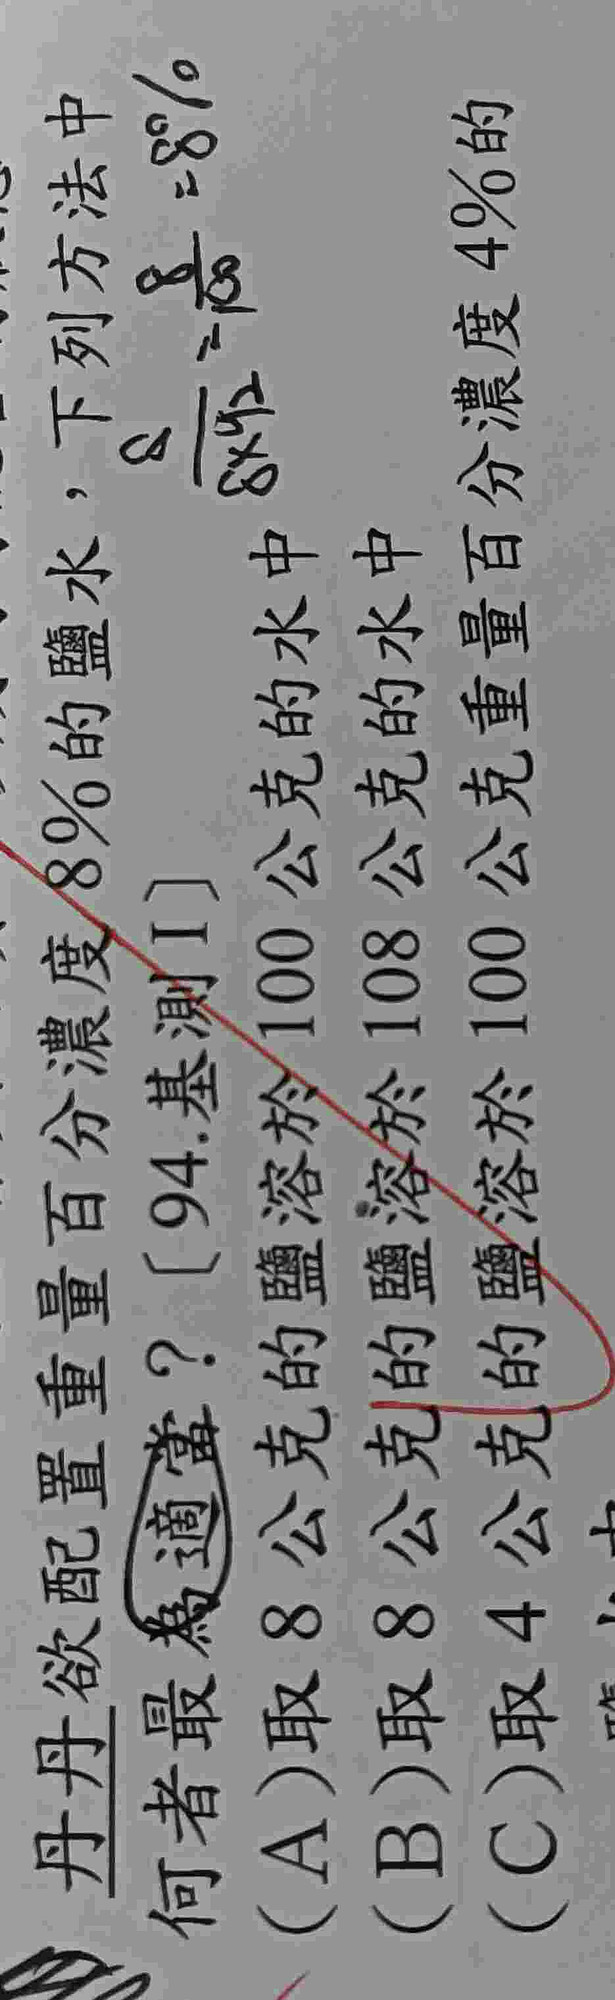 丹丹欲配置重量百分濃度 8%的鹽水，下列方法中
何者最為適當？〔94.基測 I〕
8/(8+92) = 8/100 = 8%
(A)取 8 公克的鹽溶於 100 公克的水中
(B)取 8 公克的鹽溶於 108 公克的水中
(C)取 4 公克的鹽溶於 100 公克重量百分濃度 4%的